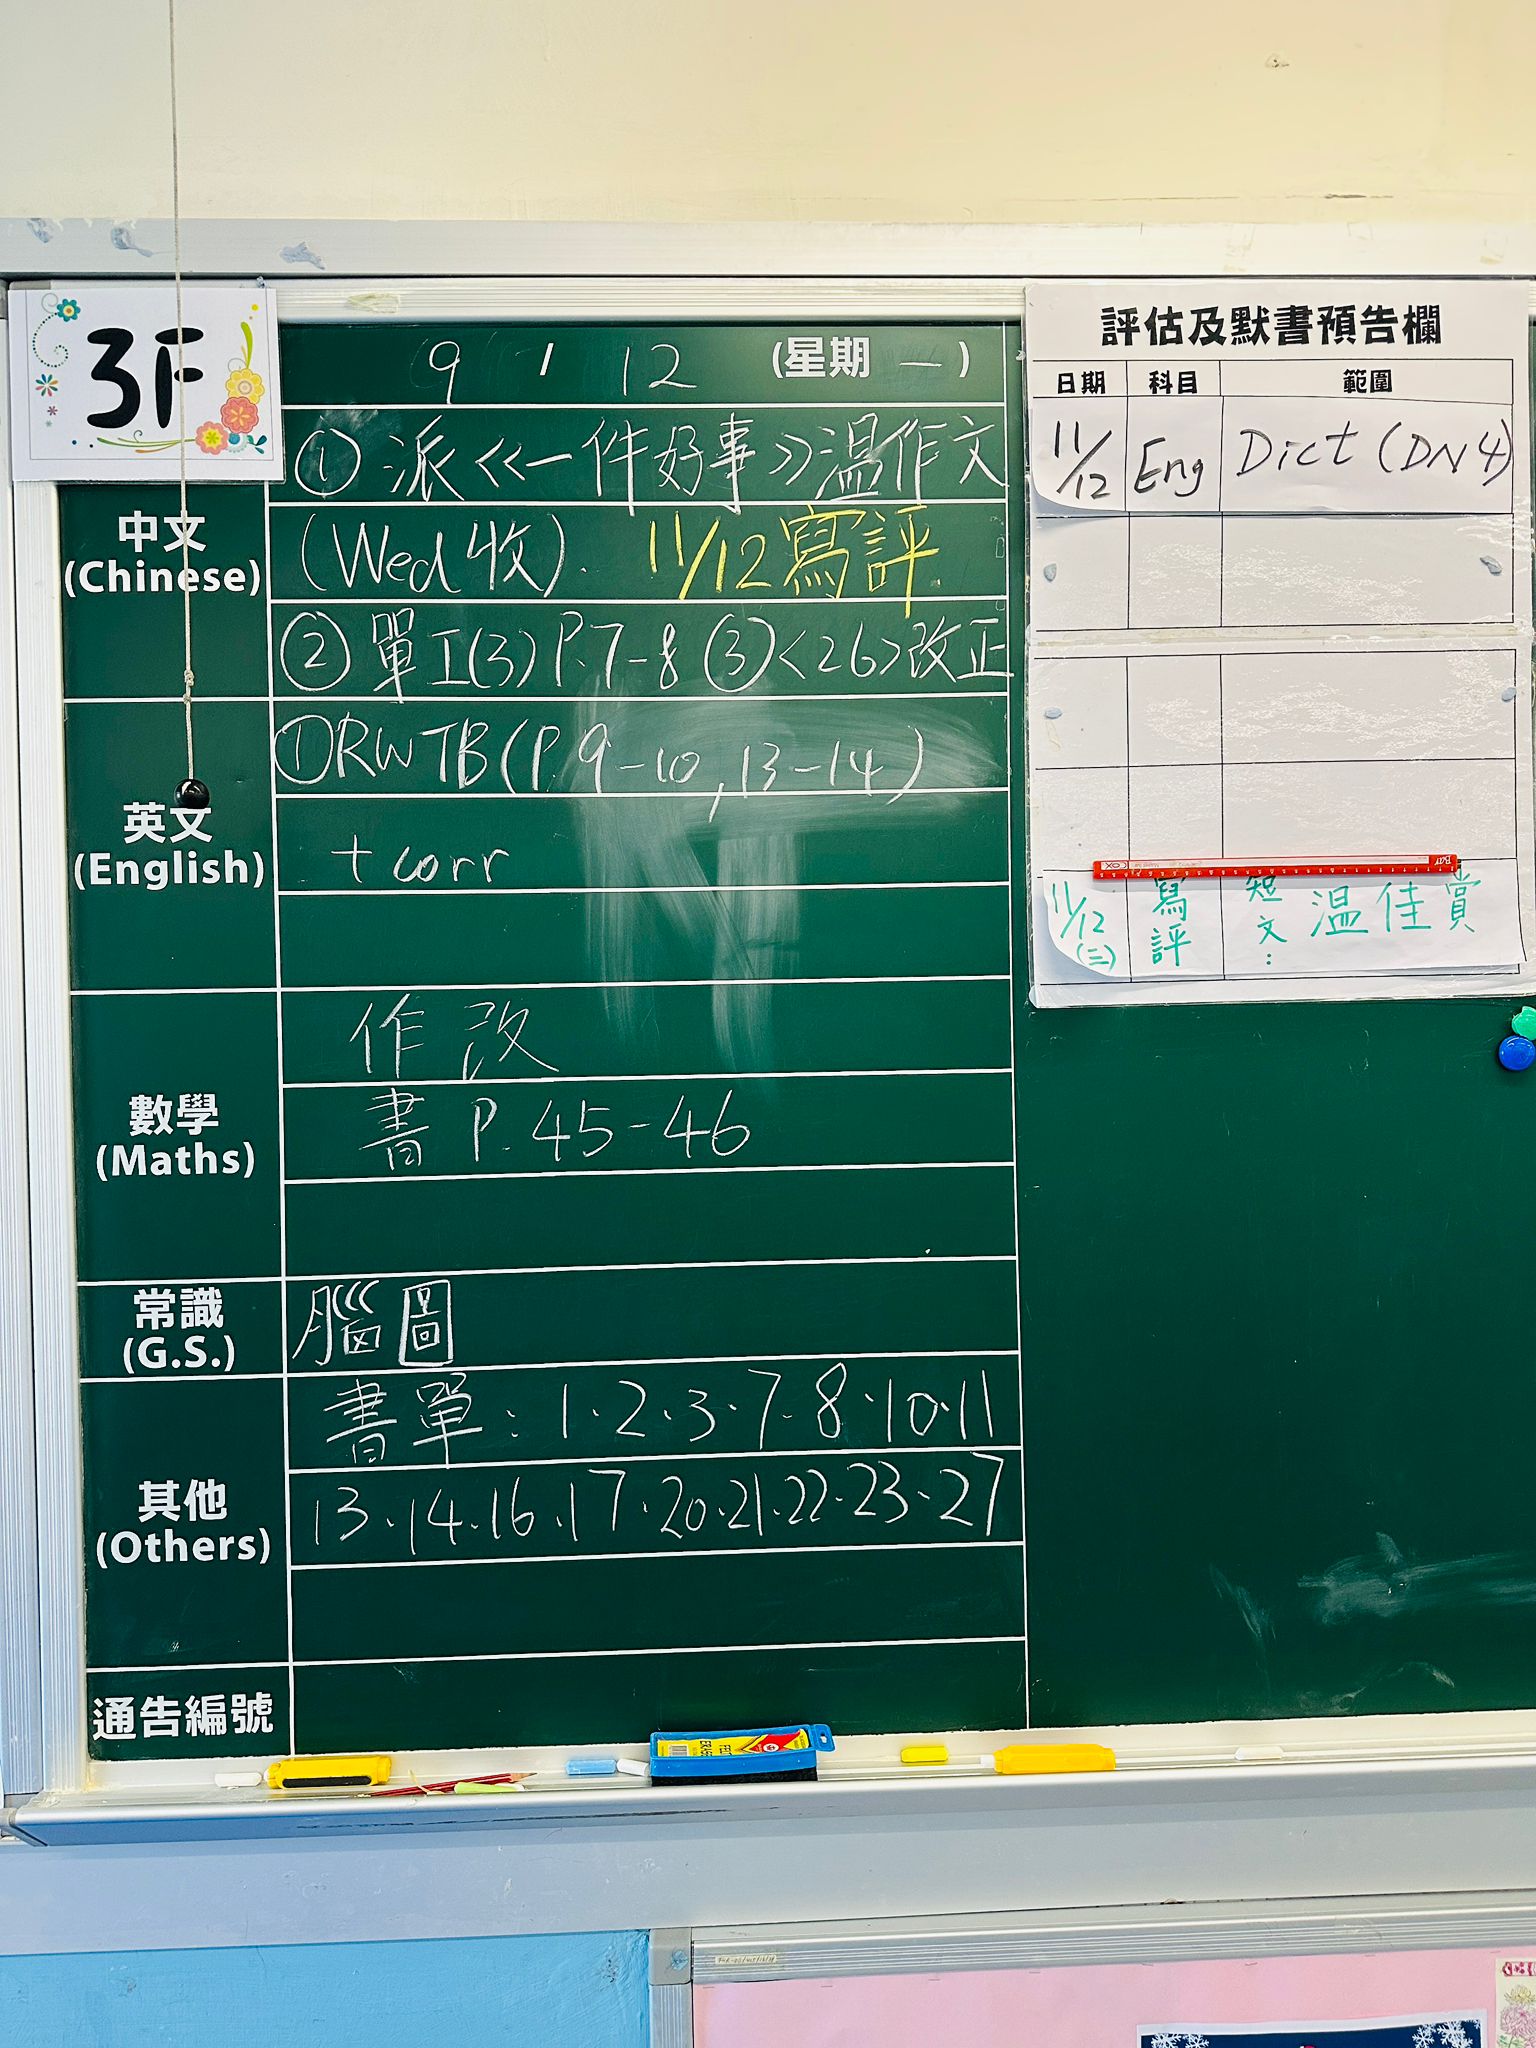 3F
9 / 12 (星期 一 )
中文
(Chinese)
① 派 <<一件好事>>温作文
(Wed 收). 11/12 寫評
② 單 I(3) P.7-8 ③<26>改正
英文
(English)
① RW TB (P.9-10, 13-14)
+ corr
數學
(Maths)
作 改
書 P. 45-46
常識
(G.S.)
腦圖
其他
(Others)
書單 : 1.2.3.7.8.10.11
13.14.16.17.20.21.22.23.27
通告編號
評估及默書預告欄
日期 科目 範圍
11/12 Eng Dict (DN4)
11/12 (三) 寫評 短文: 温佳賞